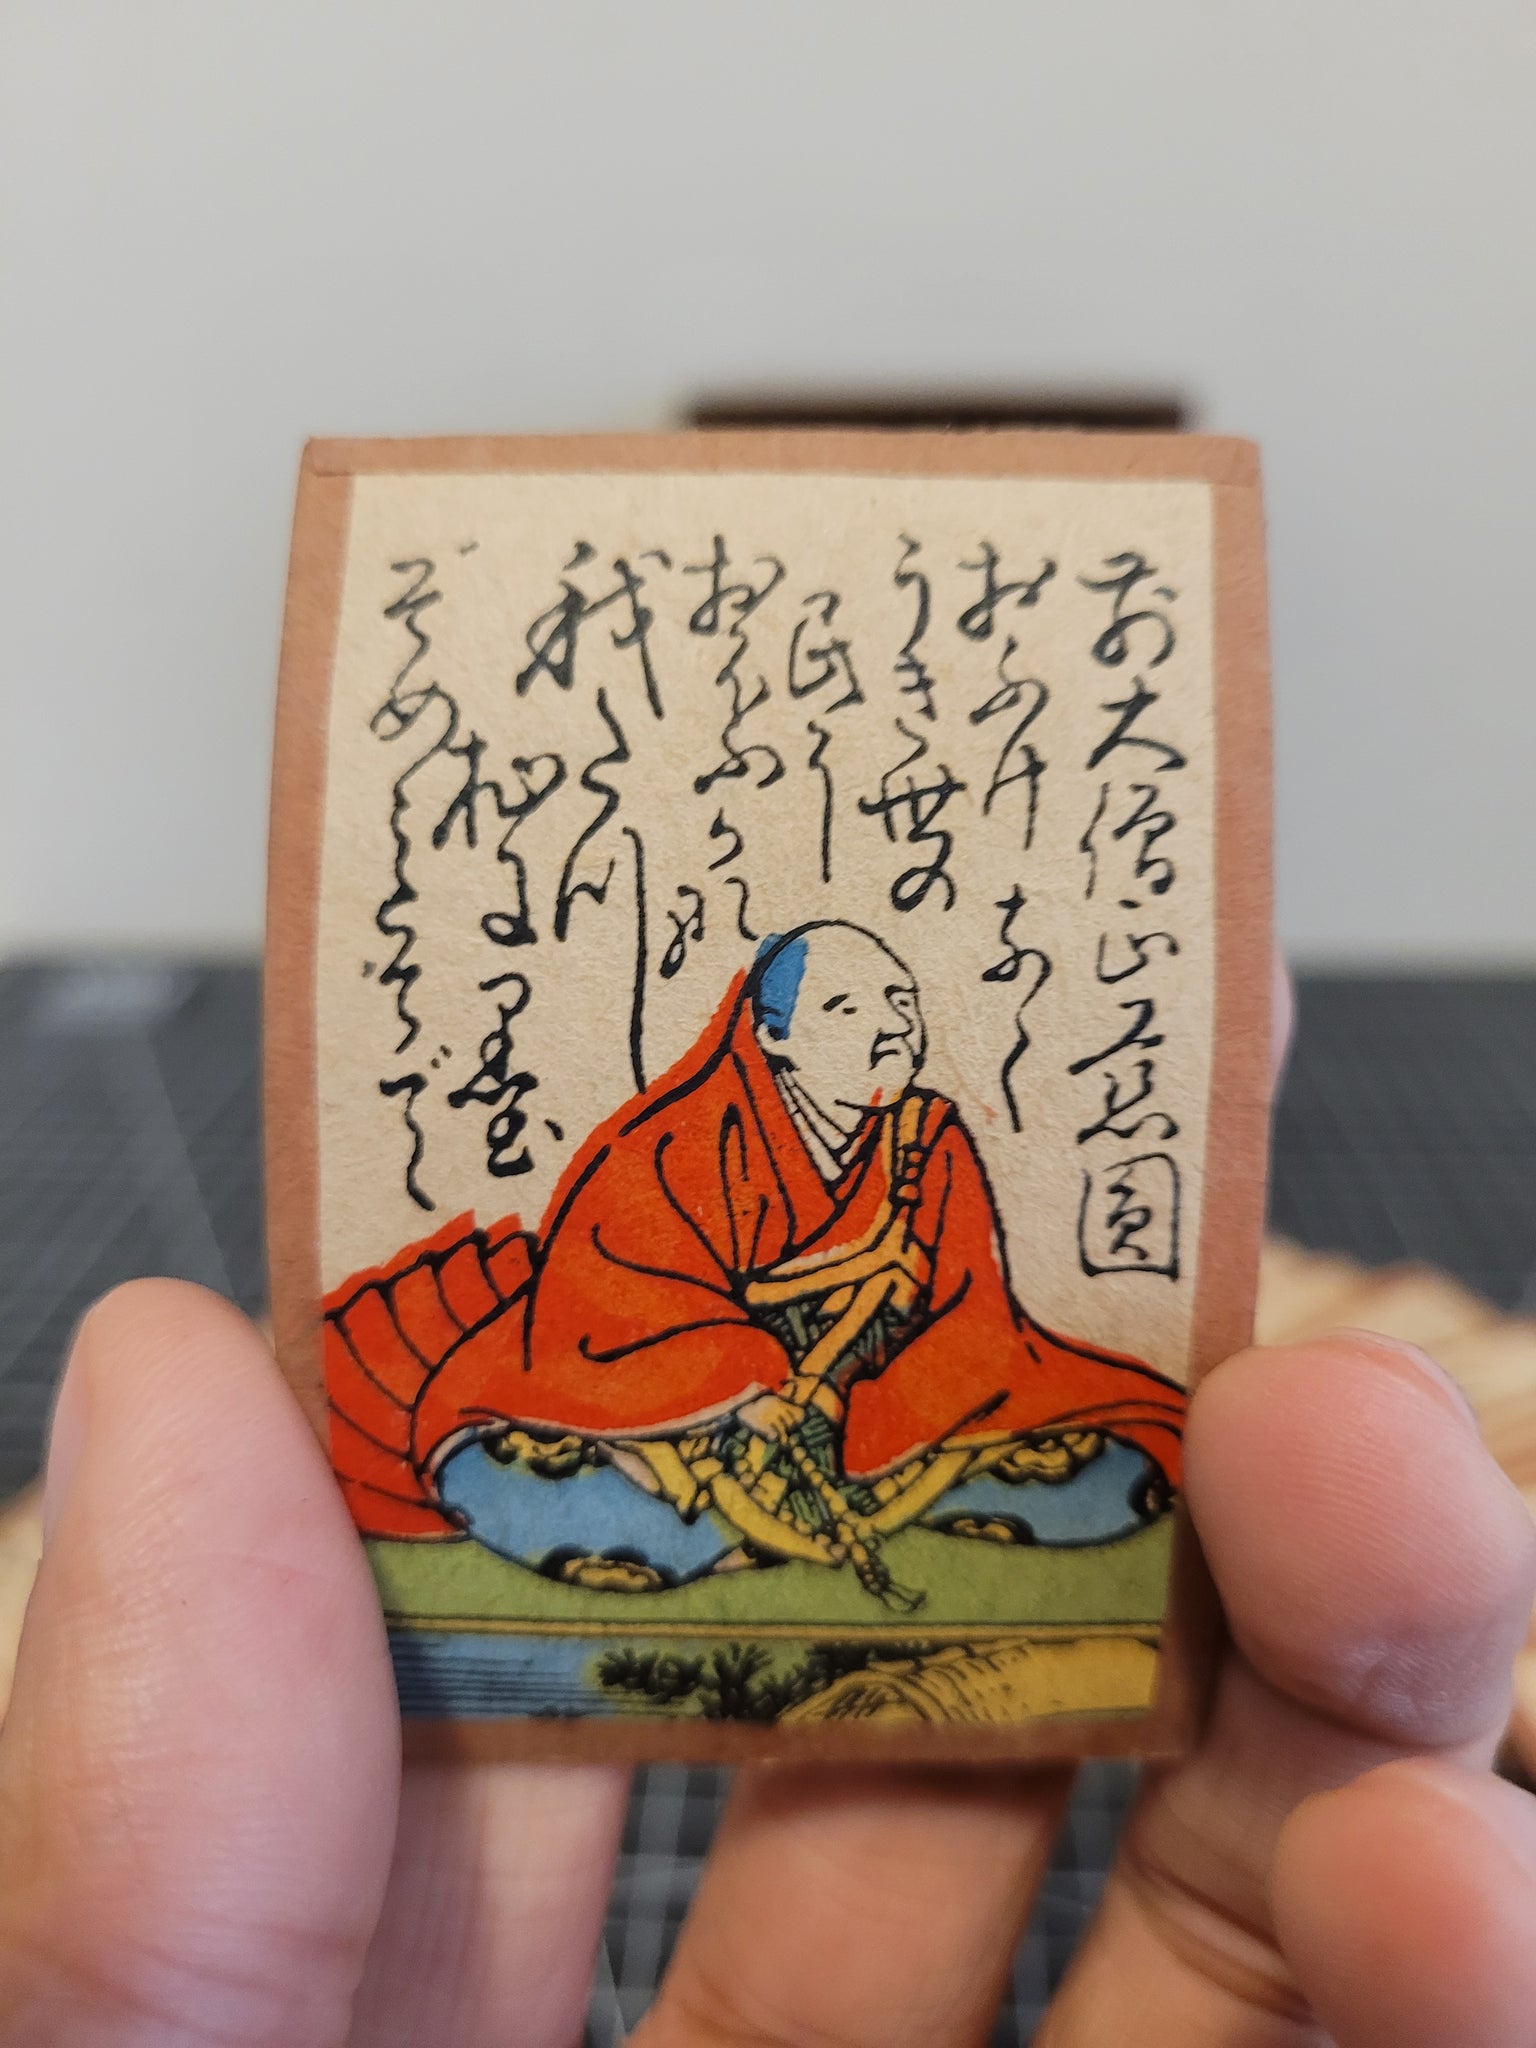 前大僧正慈圓
おふけなく
うき世の
民に
おほふかな
我たつ
杣に墨
ぞめのそで